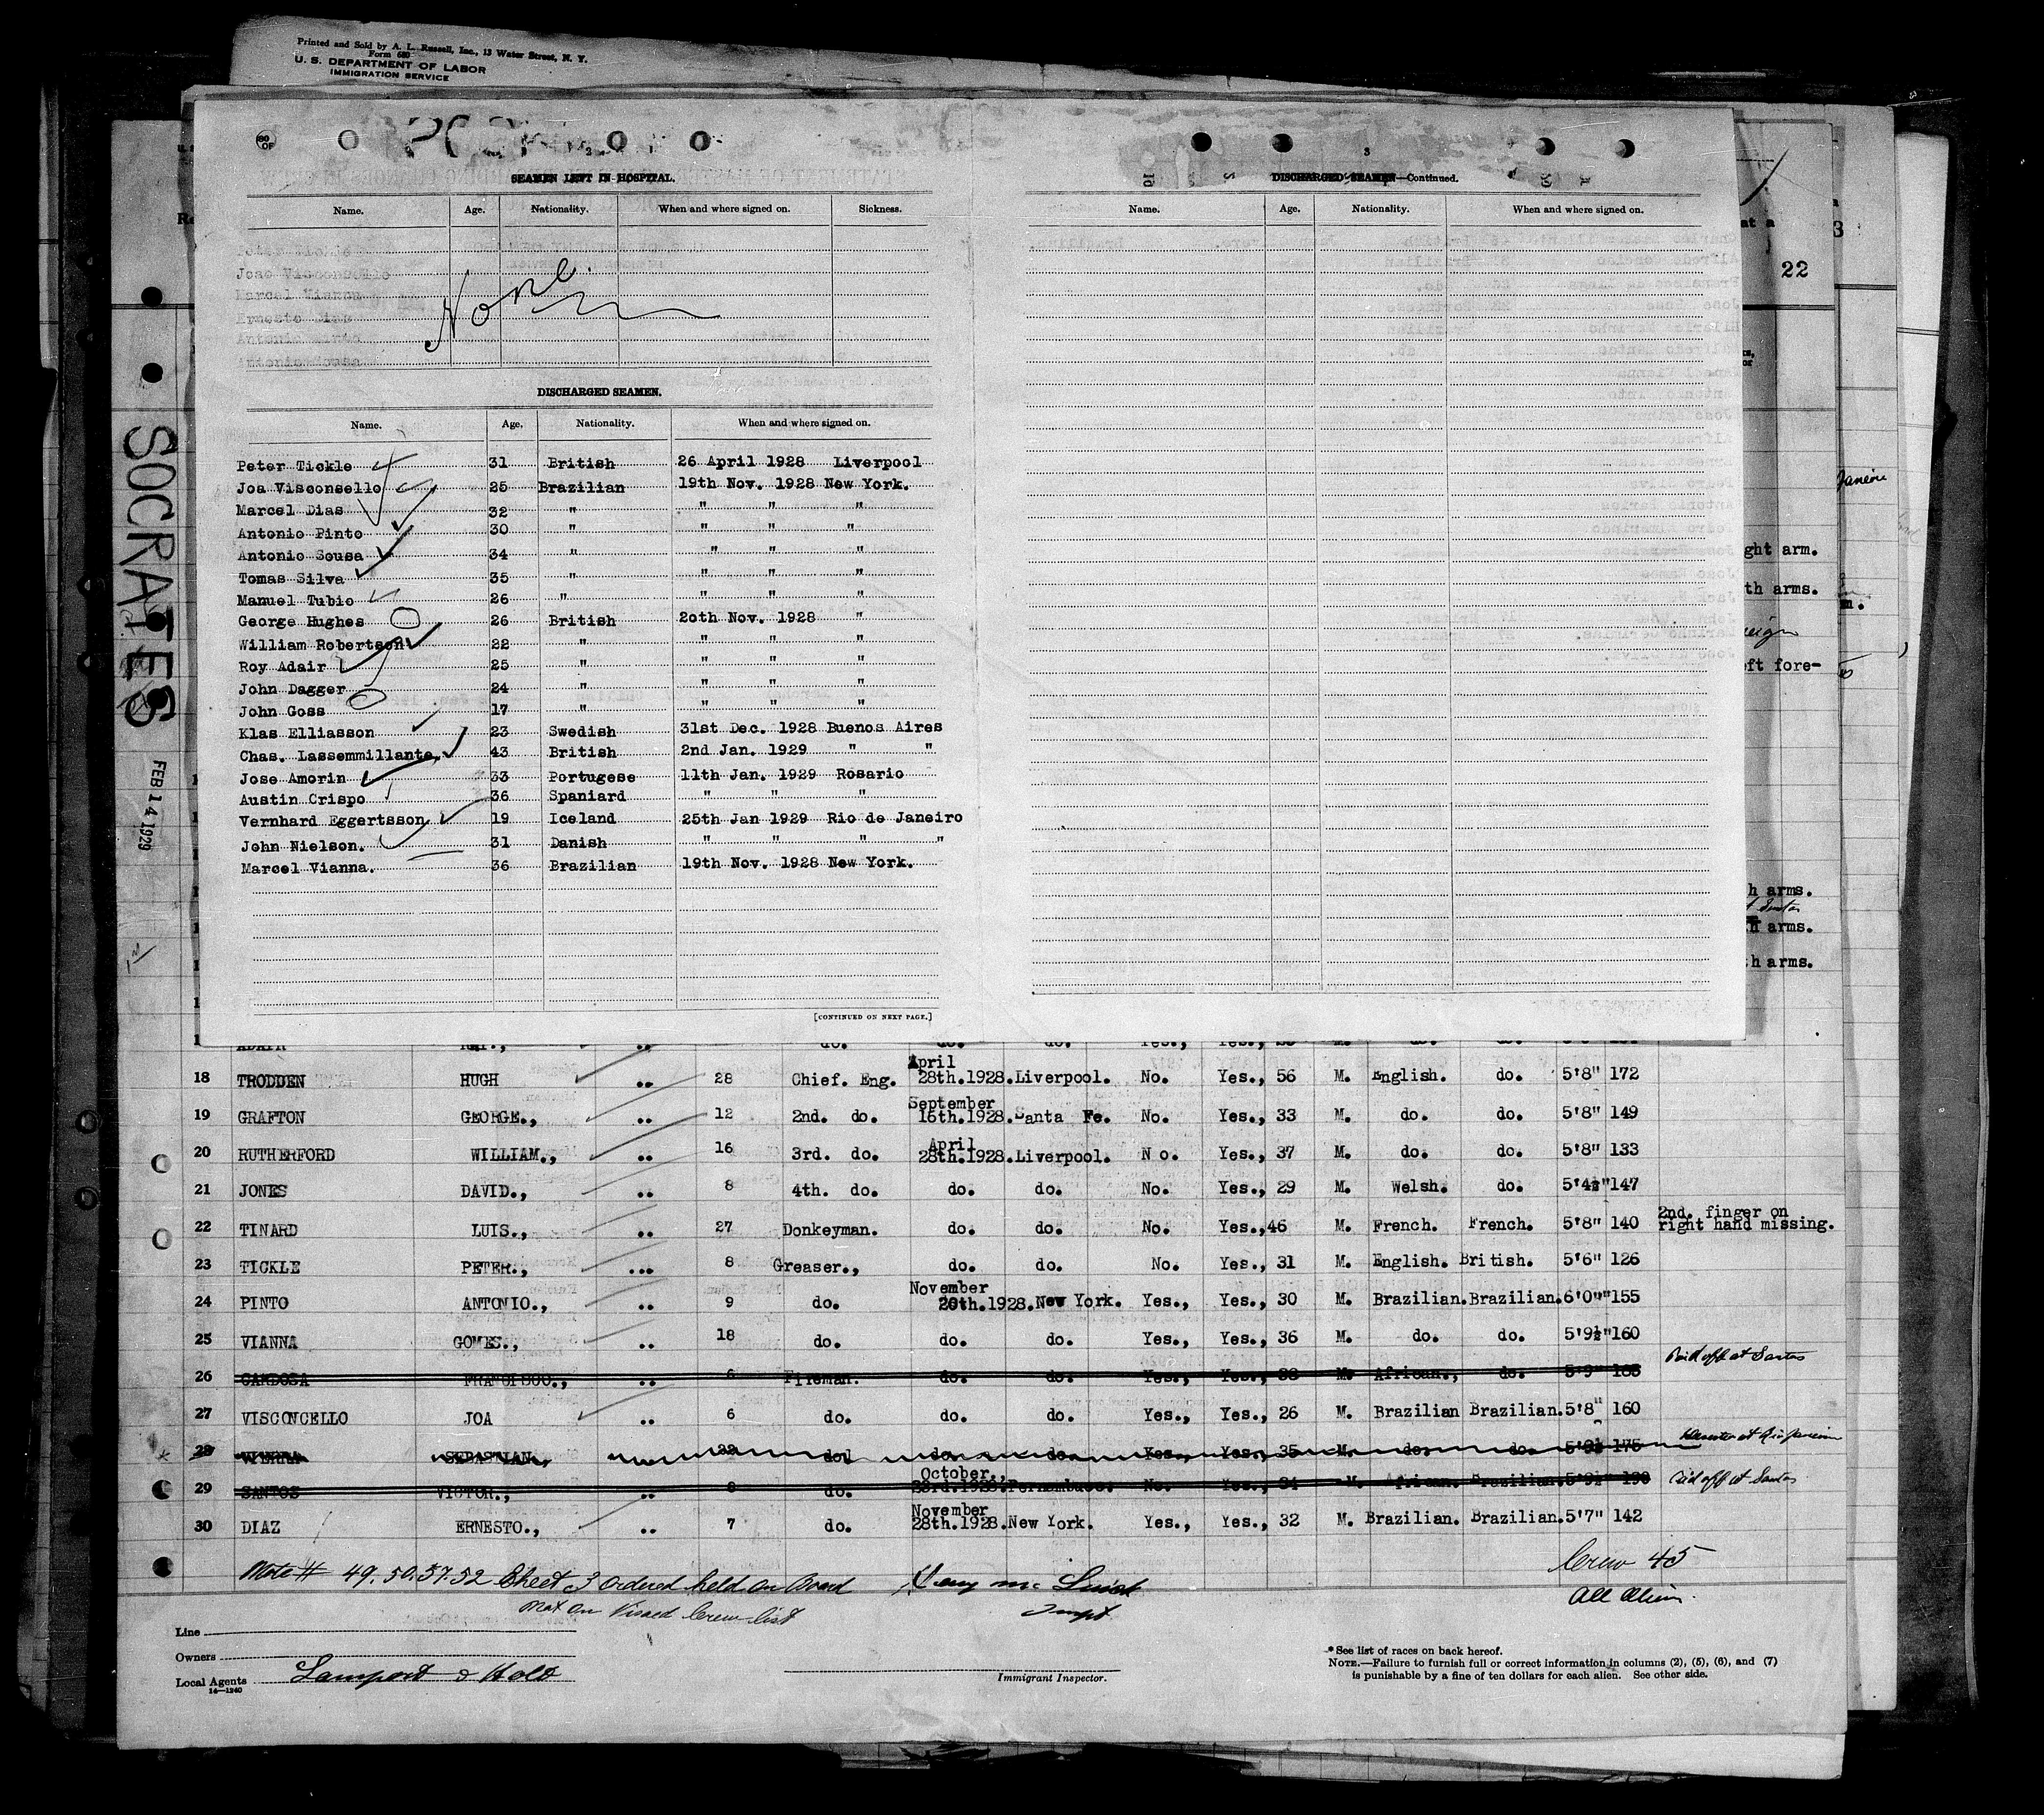 Printed and Sold by A. L. Russell, Inc., 13 Water Street, N. Y.
Form 680
U. S. DEPARTMENT OF LABOR
IMMIGRATION SERVICE
SEAMEN LEFT IN HOSPITAL.
Name. Age. Nationality. When and where signed on. Sickness.
None
DISCHARGED SEAMEN.
Name. Age. Nationality. When and where signed on.
Peter Tickle 31 British 26 April 1928 Liverpool
Joa Visconsello 25 Brazilian 19th Nov. 1928 New York.
Marcel Dias 32 " " " "
Antonio Pinto 30 " " " "
Antonio Sousa 34 " " " "
Tomas Silva 35 " " " "
Manuel Tubio 26 " " " "
George Hughes 26 British 20th Nov. 1928 "
William Robertson 22 " " " "
Roy Adair 25 " " " "
John Dagger 24 " " " "
John Goss 17 " " " "
Klas Elliasson 23 Swedish 31st Dec. 1928 Buenos Aires
Chas. Lassemmillante. 43 British 2nd Jan. 1929 " "
Jose Amorin 33 Portugese 11th Jan. 1929 Rosario
Austin Crispo 36 Spaniard " " "
Vernhard Eggertsson 19 Iceland 25th Jan 1929 Rio de Janeiro
John Nielson. 31 Danish " " " "
Marcel Vianna. 36 Brazilian 19th Nov. 1928 New York.
[CONTINUED ON NEXT PAGE.]
3
DISCHARGED SEAMEN—Continued.
Name. Age. Nationality. When and where signed on.
SOCRATES
FEB 14 1929
at a
22
3
Janeiro
ght arm.
th arms.
m.
reign
eft fore-
h arms.
th arms.
th arms.
ADAIR do. do. do. Yes., Yes., M. do. do.
18 TRODDEN HUGH .. 28 Chief. Eng. April 28th.1928. Liverpool. No. Yes., 56 M. English. do. 5'8" 172
19 GRAFTON GEORGE., .. 12 2nd. do. September 16th.1928. Santa Fe. No. Yes., 33 M. do. do. 5'8" 149
20 RUTHERFORD WILLIAM., .. 16 3rd. do. April 28th.1928. Liverpool. No. Yes., 37 M. do. do. 5'8" 133
21 JONES DAVID., .. 8 4th. do. do. do. No. Yes., 29 M. Welsh. do. 5'4½" 147
22 TINARD LUIS., .. 27 Donkeyman. do. do. No. Yes., 46 M. French. French. 5'8" 140 2nd. finger on right hand missing.
23 TICKLE PETER., ... 8 Greaser., do. do. No. Yes., 31 M. English. British. 5'6" 126
24 PINTO ANTONIO., .. 9 do. November 20th.1928. New York. Yes., Yes., 30 M. Brazilian. Brazilian. 6'0" 155
25 VIANNA GOMES., .. 18 do. do. do. Yes., Yes., 36 M. do. do. 5'9½" 160
26 CARDOSA FRANCISCO., .. 6 Fireman. do. do. Yes., Yes., 38 M. African., do. 5'9" 185 Paid off at Santos
27 VISCONCELLO JOA .. 6 do. do. do. Yes., Yes., 26 M. Brazilian Brazilian. 5'8" 160
28 VIERRA SEBASTIAN., 22 do. do. do. Yes. Yes., 35 M. do. do. 5'9½ 175
29 SANTOS VICTOR., .. 8 do. October., 23rd.1928. Pernambuco. No. Yes., 31 M. African. Brazilian. 5'9½" 190 Paid off at Santos
30 DIAZ ERNESTO., .. 7 do. November 28th.1928. New York. Yes., Yes., 32 M. Brazilian. Brazilian. 5'7" 142
Note # 49. 50. 57. 52 Sheet 3 ordered held on Board
not on Visaed Crew list
Inspt
Crew 45
All Alien.
Line
Owners
Local Agents Lamport & Holt
14—1240
Immigrant Inspector.
* See list of races on back hereof.
NOTE.—Failure to furnish full or correct information in columns (2), (5), (6), and (7)
is punishable by a fine of ten dollars for each alien. See other side.